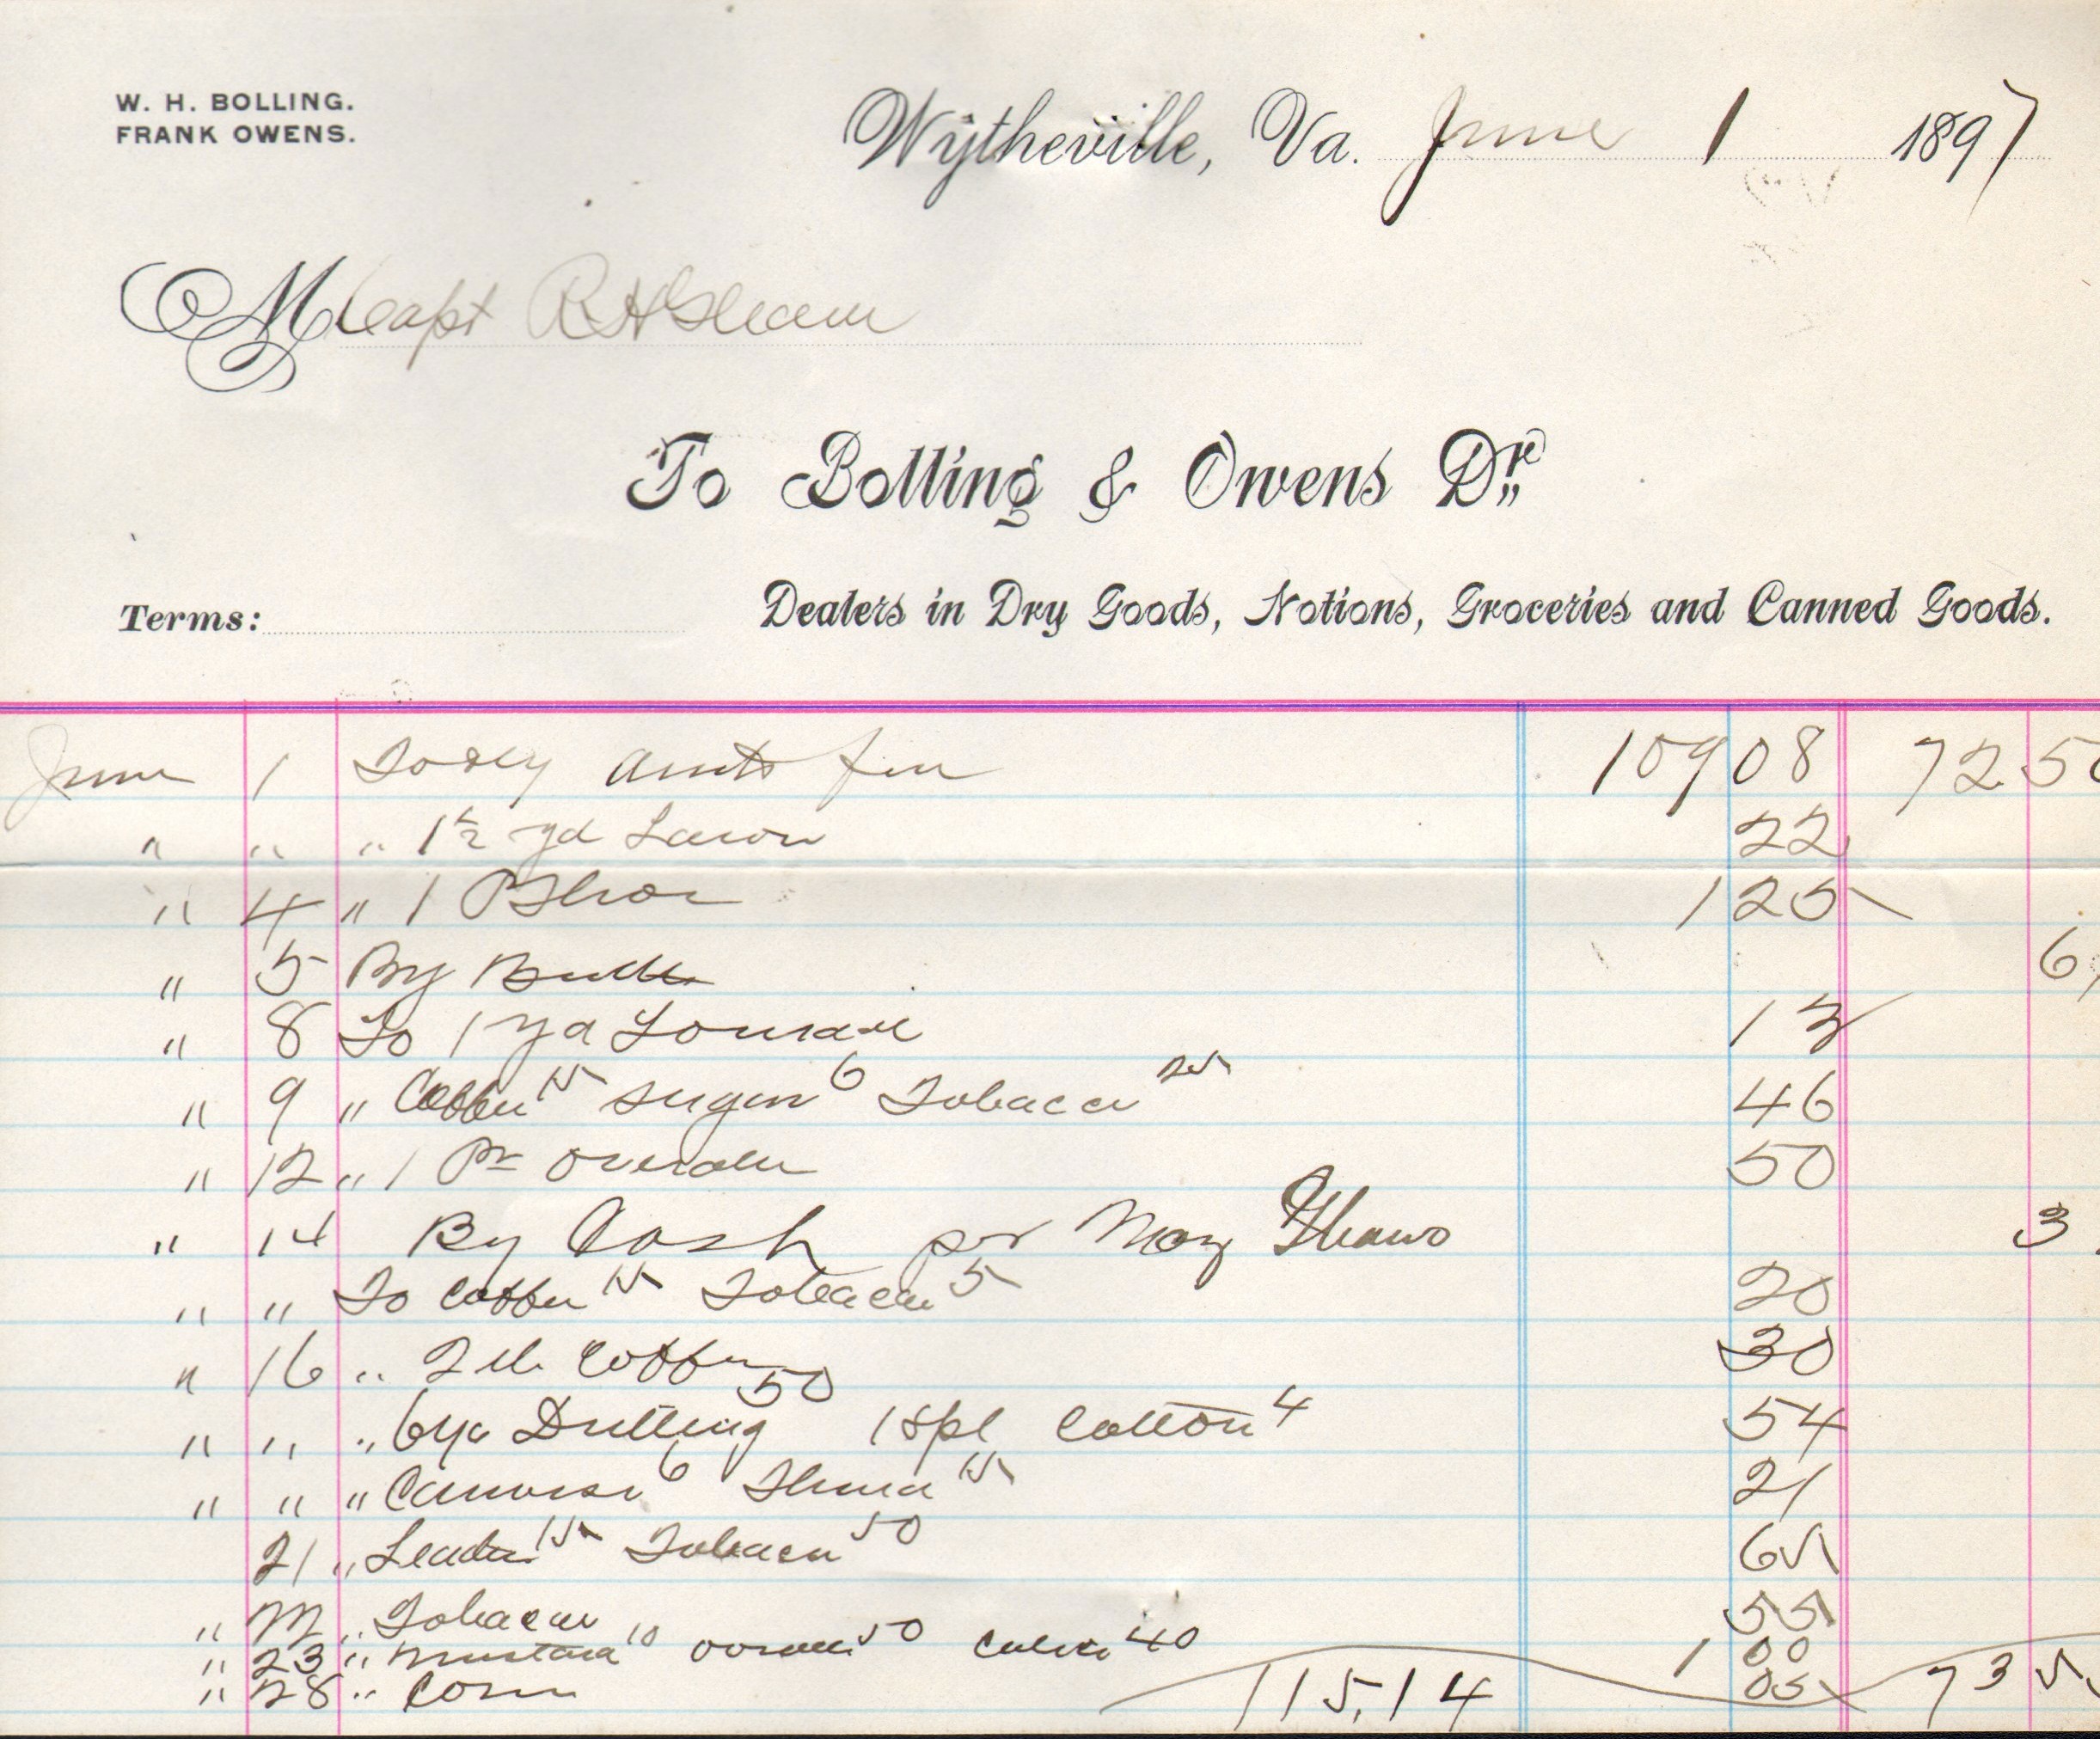 W. H. BOLLING.
FRANK OWENS.
Wytheville, Va. June 1 1897
M Capt R H Gleaves
To Bolling & Owens Dr.
Terms: Dealers in Dry Goods, Notions, Groceries and Canned Goods.
June 1 To acct 109 08 72 5
" " " 1½ yd Lawn 22
" 4 " 1 Pr Shoes 1 25
" 5 By Butter 6
" 8 To 1 yd 13
" 9 " Coffee 15 Sugar 6 Tobacco 25 46
" 12 " 1 Pr Overalls 50
" 14 By Cash per 3
" " To Coffee 15 Tobacco 5 20
" 16 " 2 lb Coffee 30
" " " 6 yd Drilling 50 1 Spl Cotton 4 54
" " " Canvas 6 15 21
21 " 15 Tobacco 50 65
" " Tobacco 55
" 23 " Mustard 10 50 40 1 00
" 28 " Corn 115,14 05 73 5